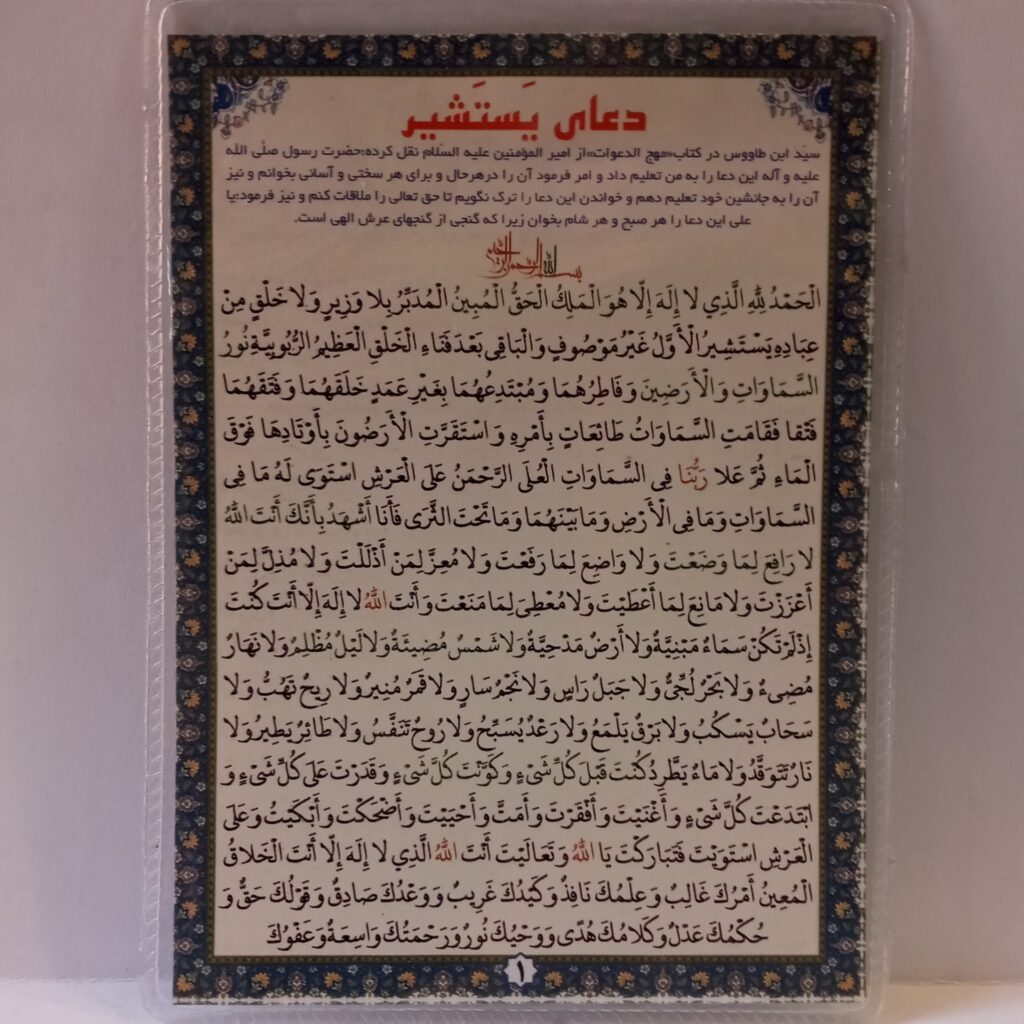 دعای یَستَشیر
سیّد ابن طاووس در کتاب«مهج الدعوات»از امیر المؤمنین علیه السّلام نقل کرده:حضرت رسول صلّی اللّه
علیه و آله این دعا را به من تعلیم داد و امر فرمود آن را درهرحال و برای هر سختی و آسانی بخوانم و نیز
آن را به جانشین خود تعلیم دهم و خواندن این دعا را ترک نگویم تا حق تعالی را ملاقات کنم و نیز فرمود:یا
علی این دعا را هر صبح و هر شام بخوان زیرا که گنجی از گنجهای عرش الهی است.
بسم الله الرحمن الرحیم
الْحَمْدُ لِلَّهِ الَّذِي لا إِلَهَ إِلّا هُوَ الْمَلِكُ الْحَقُّ الْمُبِينُ الْمُدَبِّرُ بِلا وَزِيرٍ وَلا خَلْقٍ مِنْ
عِبَادِهِ يَسْتَشِيرُ الْأَوَّلُ غَيْرُ مَوْصُوفٍ وَالْبَاقِي بَعْدَ فَنَاءِ الْخَلْقِ الْعَظِيمُ الرُّبُوبِيَّةِ نُورُ
السَّمَاوَاتِ وَالْأَرَضِينَ وَفَاطِرُهُمَا وَمُبْتَدِعُهُمَا بِغَيْرِ عَمَدٍ خَلَقَهُمَا وَفَتَقَهُمَا
فَتْقا فَقَامَتِ السَّمَاوَاتُ طَائِعَاتٍ بِأَمْرِهِ وَاسْتَقَرَّتِ الْأَرَضُونَ بِأَوْتَادِهَا فَوْقَ
الْمَاءِ ثُمَّ عَلا رَبُّنَا فِي السَّمَاوَاتِ الْعُلَى الرَّحْمَنُ عَلَى الْعَرْشِ اسْتَوَى لَهُ مَا فِي
السَّمَاوَاتِ وَمَا فِي الْأَرْضِ وَمَا بَيْنَهُمَا وَمَا تَحْتَ الثَّرَى فَأَنَا أَشْهَدُ بِأَنَّكَ أَنْتَ اللَّهُ
لا رَافِعَ لِمَا وَضَعْتَ وَلا وَاضِعَ لِمَا رَفَعْتَ وَلا مُعِزَّ لِمَنْ أَذْلَلْتَ وَلا مُذِلَّ لِمَنْ
أَعْزَزْتَ وَلا مَانِعَ لِمَا أَعْطَيْتَ وَلا مُعْطِيَ لِمَا مَنَعْتَ وَأَنْتَ اللَّهُ لا إِلَهَ إِلّا أَنْتَ كُنْتَ
إِذْ لَمْ تَكُنْ سَمَاءٌ مَبْنِيَّةٌ وَلا أَرْضٌ مَدْحِيَّةٌ وَلا شَمْسٌ مُضِيئَةٌ وَلا لَيْلٌ مُظْلِمٌ وَلا نَهَارٌ
مُضِيءٌ وَلا بَحْرٌ لُجِّيٌّ وَلا جَبَلٌ رَاسٍ وَلا نَجْمٌ سَارٍ وَلا قَمَرٌ مُنِيرٌ وَلا رِيحٌ تَهُبُّ وَلا
سَحَابٌ يَسْكُبُ وَلا بَرْقٌ يَلْمَعُ وَلا رَعْدٌ يُسَبِّحُ وَلا رُوحٌ تَنَفَّسُ وَلا طَائِرٌ يَطِيرُ وَلا
نَارٌ تَتَوَقَّدُ وَلا مَاءٌ يَطَّرِدُ كُنْتَ قَبْلَ كُلِّ شَيْءٍ وَكَوَّنْتَ كُلَّ شَيْءٍ وَقَدَرْتَ عَلَى كُلِّ شَيْءٍ وَ
ابْتَدَعْتَ كُلَّ شَيْءٍ وَأَغْنَيْتَ وَأَفْقَرْتَ وَأَمَتَّ وَأَحْيَيْتَ وَأَضْحَكْتَ وَأَبْكَيْتَ وَعَلَى
الْعَرْشِ اسْتَوَيْتَ فَتَبَارَكْتَ يَا اللَّهُ وَتَعَالَيْتَ أَنْتَ اللَّهُ الَّذِي لا إِلَهَ إِلّا أَنْتَ الْخَلاقُ
الْمُعِينُ أَمْرُكَ غَالِبٌ وَعِلْمُكَ نَافِذٌ وَكَيْدُكَ غَرِيبٌ وَوَعْدُكَ صَادِقٌ وَقَوْلُكَ حَقٌّ وَ
حُكْمُكَ عَدْلٌ وَكَلامُكَ هُدًى وَوَحْيُكَ نُورٌ وَرَحْمَتُكَ وَاسِعَةٌ وَعَفْوُكَ
۱